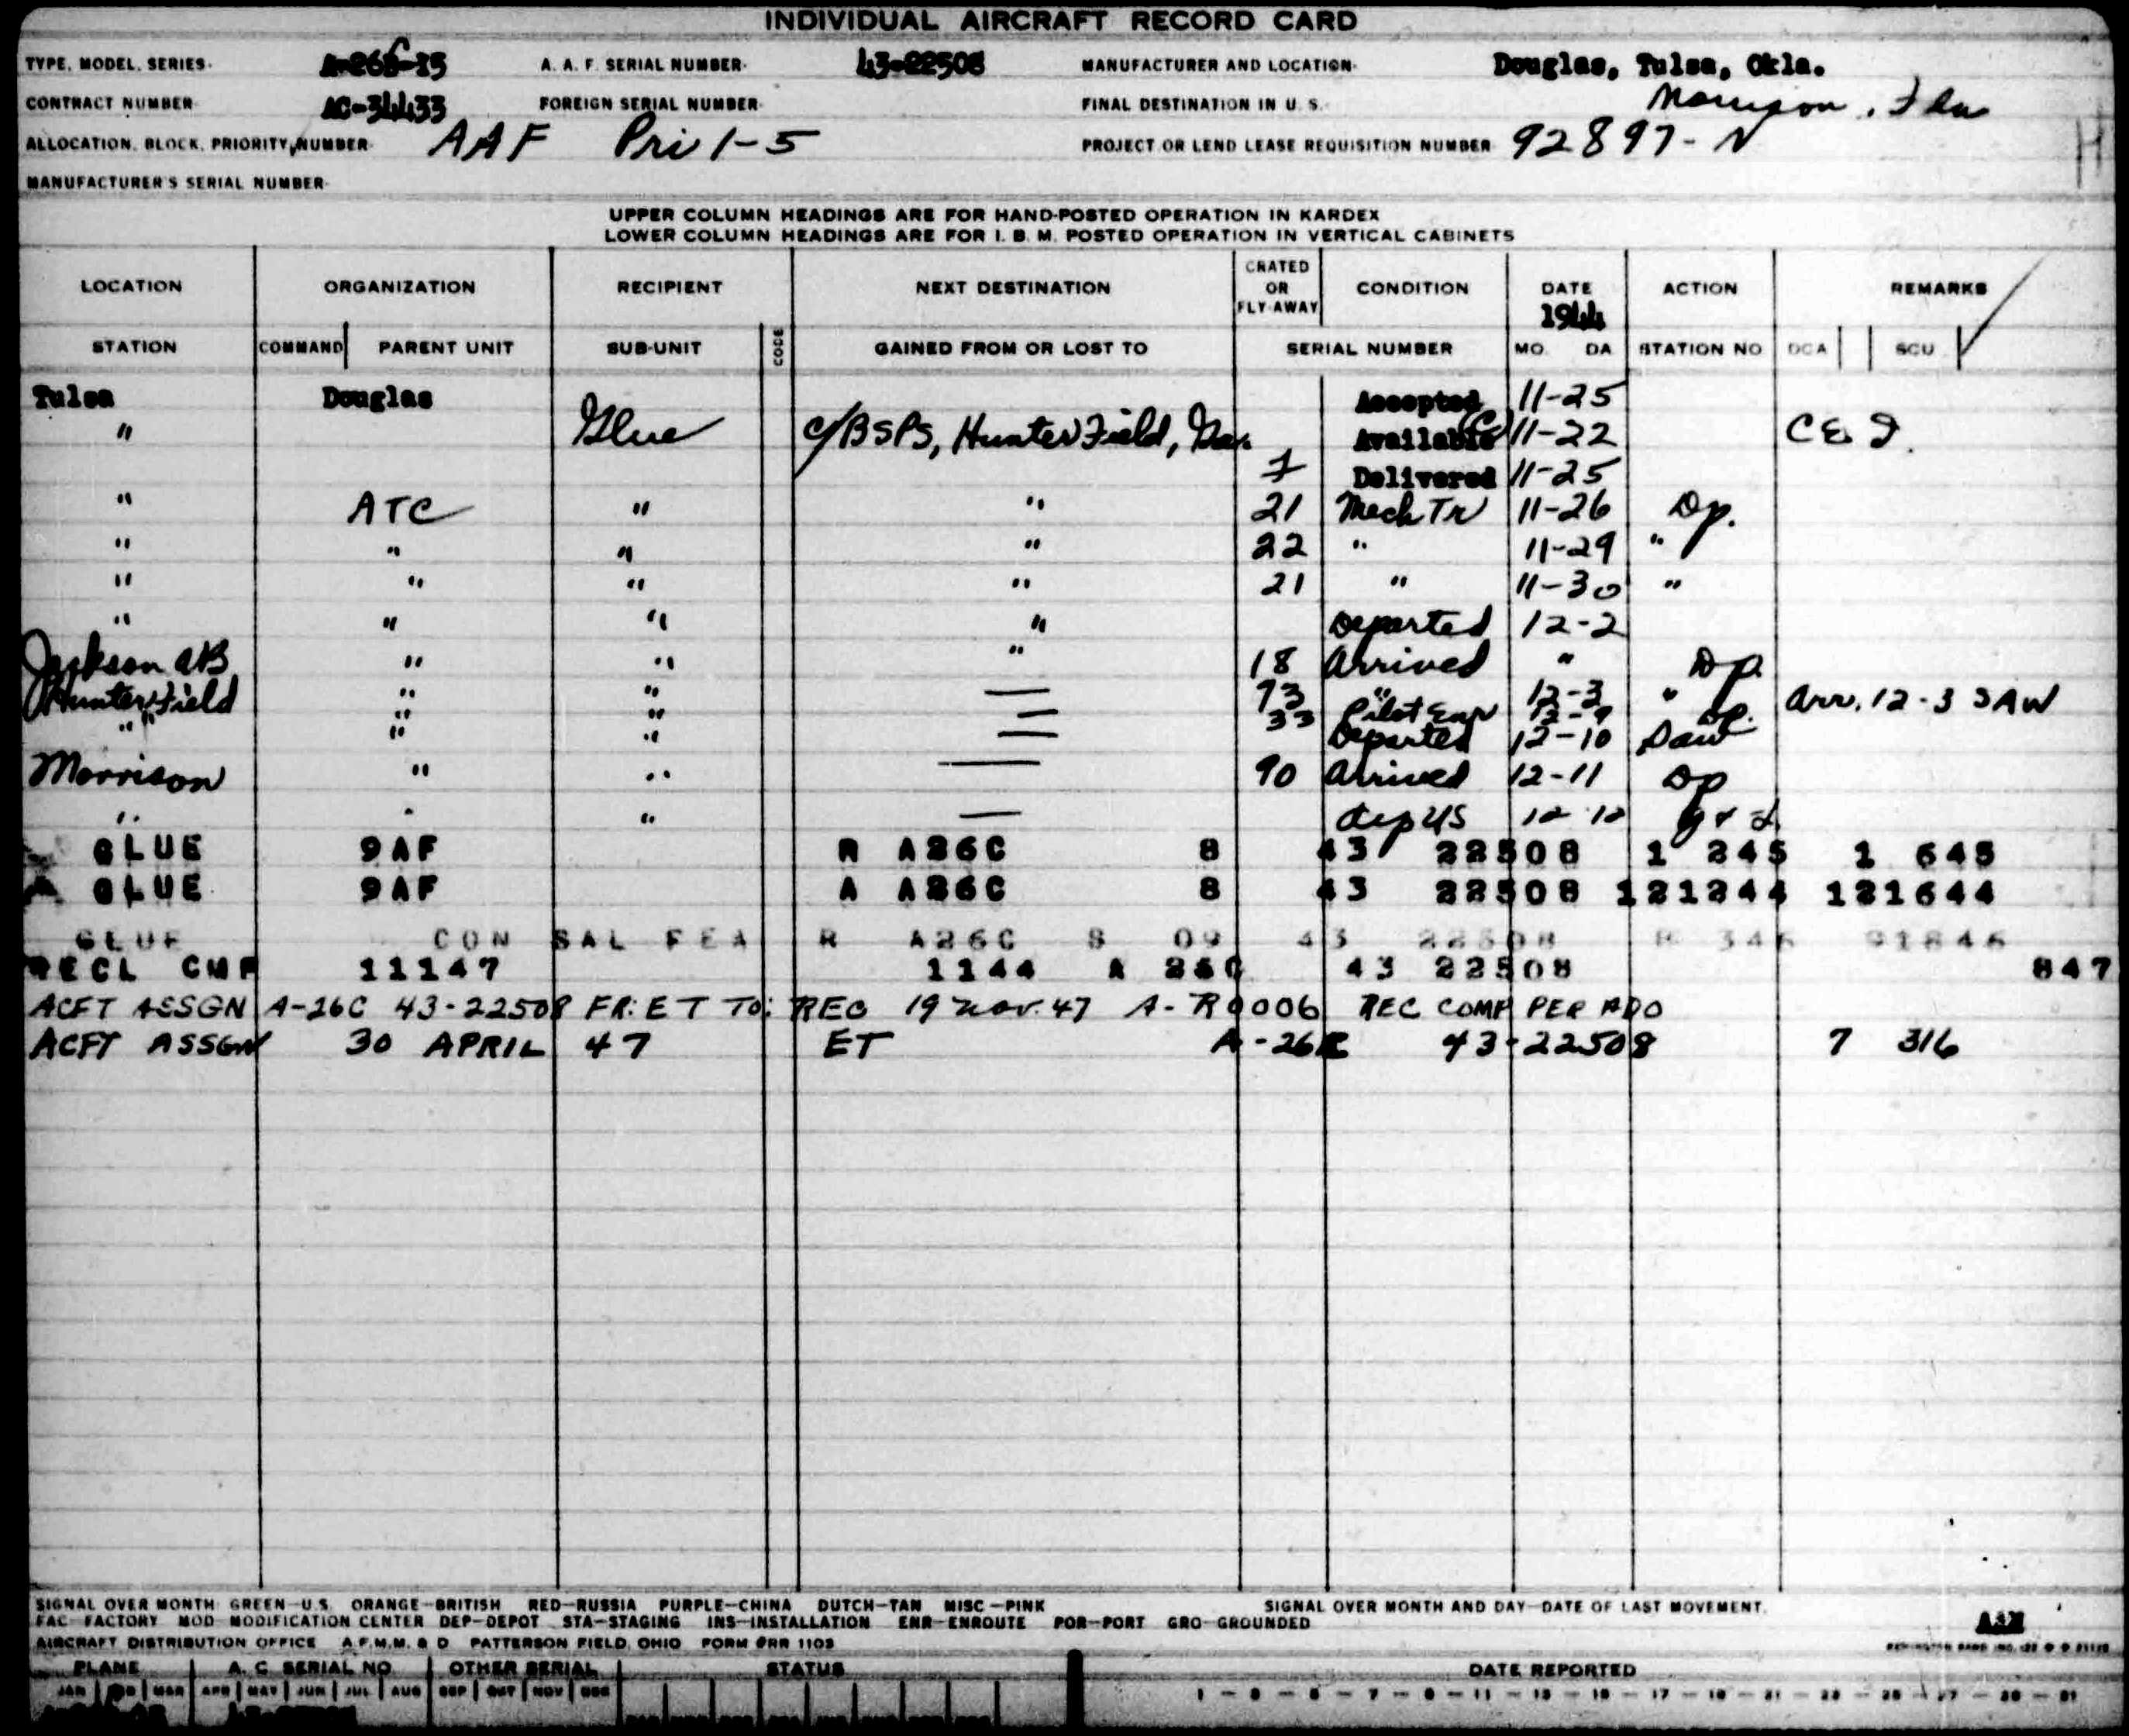 INDIVIDUAL AIRCRAFT RECORD CARD
TYPE, MODEL, SERIES A-26C-15 A. A. F. SERIAL NUMBER 43-22508 MANUFACTURER AND LOCATION Douglas, Tulsa, Okla.
CONTRACT NUMBER AC-34433 FOREIGN SERIAL NUMBER FINAL DESTINATION IN U. S. Morrison, Fla
ALLOCATION, BLOCK, PRIORITY, NUMBER AAF Pri 1-5 PROJECT OR LEND LEASE REQUISITION NUMBER 92897-N
MANUFACTURER'S SERIAL NUMBER
H
UPPER COLUMN HEADINGS ARE FOR HAND-POSTED OPERATION IN KARDEX
LOWER COLUMN HEADINGS ARE FOR I. B. M. POSTED OPERATION IN VERTICAL CABINETS
LOCATION ORGANIZATION RECIPIENT NEXT DESTINATION CRATED OR FLY-AWAY CONDITION DATE 1944 ACTION REMARKS
STATION COMMAND PARENT UNIT SUB-UNIT CODE GAINED FROM OR LOST TO SERIAL NUMBER MO. DA STATION NO DCA SCU
Tulsa Douglas Accepted 11-25
" Glue c/BSPS, Hunter Field, Ga. Available (C) 11-22 CE I.
7 Delivered 11-25
" ATC " " 21 Mech Tr 11-26 Dp.
" " " " 22 " 11-29 "
" " " " 21 " 11-30 "
" " " " Departed 12-2
Jackson AB " " " 18 Arrived " Dp.
Hunter Field " " — 73 " 12-3 " Arr. 12-3 SAW
" " " — 33 Pilot Enr 12-9 Dp.
" " — Departed 12-10 Saw
Morrison " " — 90 Arrived 12-11 Dp
" " " — dep US 12 12
GLUE 9AF R A26C 8 43 22508 1 245 1 645
GLUE 9AF A A26C 8 43 22508 121244 121644
GLUE CON SAL FEA R A26C S 09 43 22508 R 346 91846
RECL CMP 11147 1144 A 26C 43 22508 847
ACFT ASSGN A-26C 43-22508 FR: ET TO: REC 19 Nov. 47 A-R0006 REC COMP PER ADO
ACFT ASSGN 30 APRIL 47 ET A-26C 43-22508 7 316
SIGNAL OVER MONTH GREEN—U.S. ORANGE—BRITISH RED—RUSSIA PURPLE—CHINA DUTCH—TAN MISC—PINK SIGNAL OVER MONTH AND DAY—DATE OF LAST MOVEMENT.
FAC—FACTORY MOD—MODIFICATION CENTER DEP—DEPOT STA—STAGING INS—INSTALLATION ENR—ENROUTE POR—PORT GRO—GROUNDED
AIRCRAFT DISTRIBUTION OFFICE A.F.M.M. & D PATTERSON FIELD, OHIO FORM #RR 1103
PLANE A. C. SERIAL NO. OTHER SERIAL STATUS DATE REPORTED
JAN MAR APR MAY JUN JUL AUG SEP OCT NOV DEC